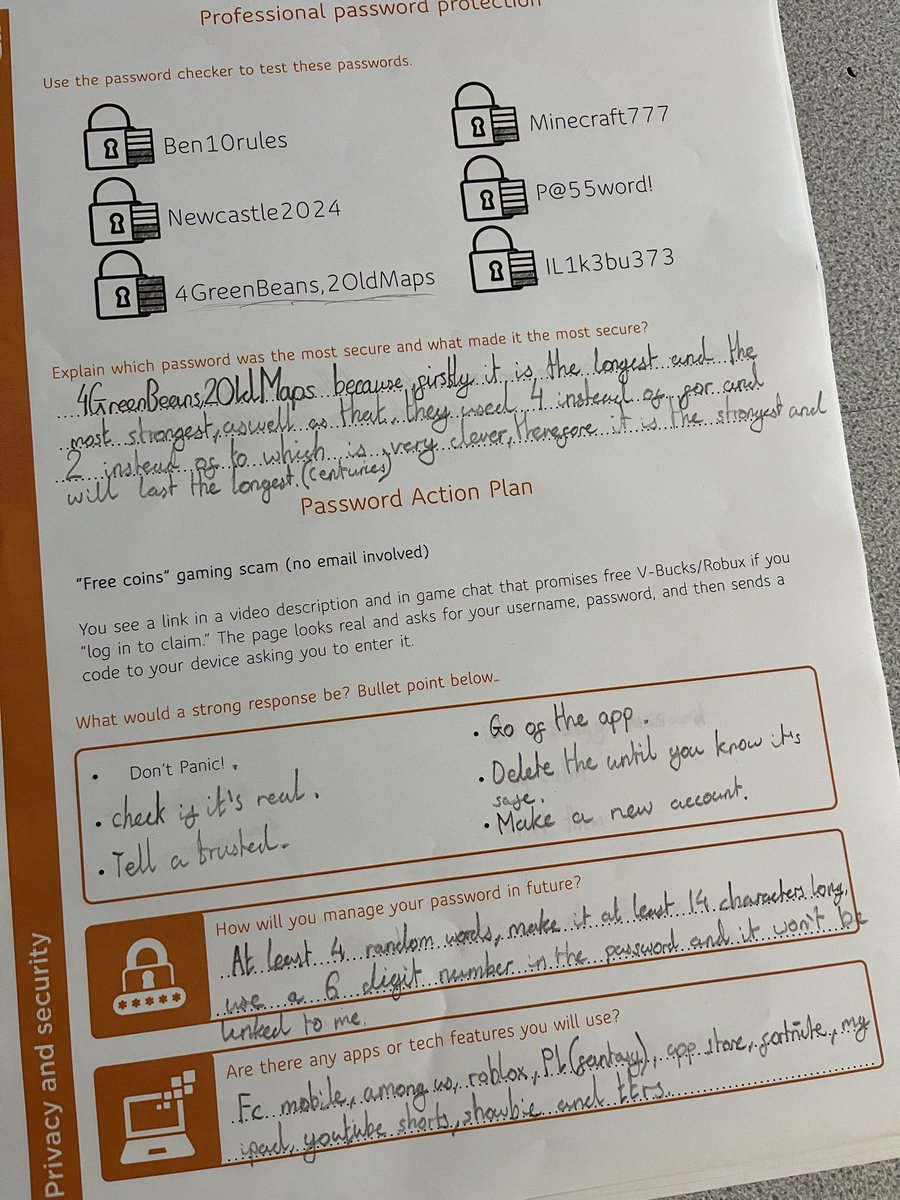 Professional password protection
Use the password checker to test these passwords.
Ben10rules
Minecraft777
Newcastle2024
P@55word!
4GreenBeans,2OldMaps
IL1k3bu373
Explain which password was the most secure and what made it the most secure?
4GreenBeans,2OldMaps because, firstly it is the longest and the
most strongest, aswell as that, they used 4 instead of for and
2 instead of to which is very clever, therefore it is the strongest and
will last the longest. (centuries)
Password Action Plan
"Free coins" gaming scam (no email involved)
You see a link in a video description and in game chat that promises free V-Bucks/Robux if you
"log in to claim." The page looks real and asks for your username, password, and then sends a
code to your device asking you to enter it.
What would a strong response be? Bullet point below...
• Don't Panic! .
• check if it's real.
• Tell a trusted.
• Go of the app.
• Delete the until you know it's
safe.
• Make a new account.
How will you manage your password in future?
At least 4 random words, make it at least 14 characters long,
use a 6 digit number in the password and it won't be
linked to me.
Are there any apps or tech features you will use?
Fc mobile, among us, roblox, PL (fantasy), app store, fortnite, my
ipad, youtube shorts, showbie and ttrs.
Privacy and security